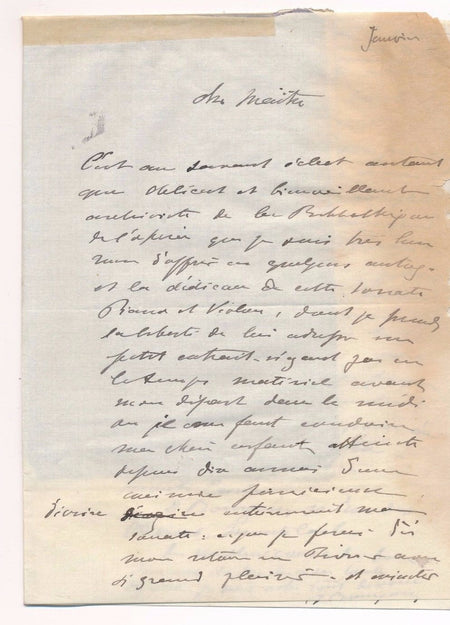 Janvier
cher Maître
C'est au savant éclect autant
que délicat et bienveillant
archiviste de la Bibliothèque
de l'opéra que je suis très heu
d'offrir ces quelques autog-
et la dédicace de cette sonate
Piano et Violon, dont je prends
la liberté de lui adresser un
petit extrait - n'ayant pas eu
le temps matériel avant
mon départ dans le midi
où il me faut conduire
ma chère enfant atteinte
depuis dix années d'une
anémie pernicieuse
d'écrire entièrement ma
sonate - ce que je ferai dès
mon retour en février avec
si grand plaisir - et